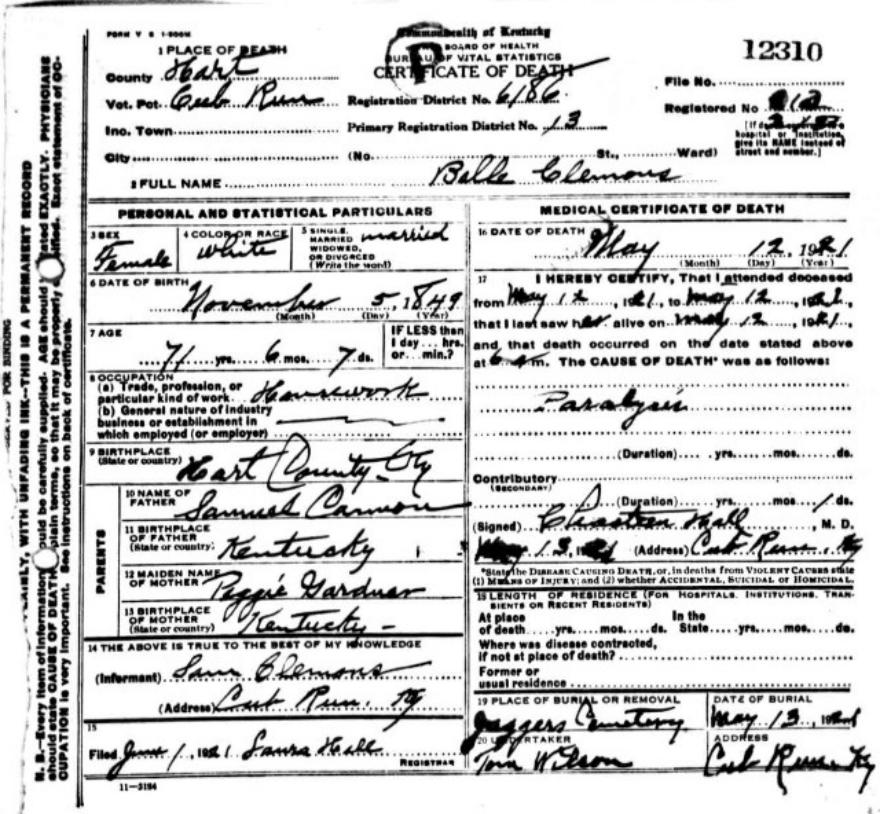 FORM V S 1-500M
Commonwealth of Kentucky
BOARD OF HEALTH
BUREAU OF VITAL STATISTICS
CERTIFICATE OF DEATH
12310
1 PLACE OF DEATH
County Hart
Vot. Pct. Cub Run
Inc. Town
City
Registration District No. 6186
Primary Registration District No. 13
(No. St., Ward)
File No.
Registered No 212
hospital or institution, give its NAME instead of street and number.]
2 FULL NAME Belle Clemons
PERSONAL AND STATISTICAL PARTICULARS
3 SEX
Female
4 COLOR OR RACE
White
5 SINGLE, MARRIED WIDOWED, OR DIVORCED (Write the word)
married
6 DATE OF BIRTH
November 5, 1849
(Month) (Day) (Year)
7 AGE
71 yrs. 6 mos. 7 ds.
IF LESS than 1 day ... hrs. or ... min.?
8 OCCUPATION
(a) Trade, profession, or particular kind of work Housework
(b) General nature of industry business or establishment in which employed (or employer)
9 BIRTHPLACE
(State or country) Hart County Ky
PARENTS
10 NAME OF FATHER Samuel Cannon
11 BIRTHPLACE OF FATHER (State or country) Kentucky
12 MAIDEN NAME OF MOTHER Peggie Gardner
13 BIRTHPLACE OF MOTHER (State or country) Kentucky
14 THE ABOVE IS TRUE TO THE BEST OF MY KNOWLEDGE
(Informant) Sam Clemons
(Address) Cub Run, Ky
15
Filed June 1, 1921 Laura Hall
REGISTRAR
11-3184
MEDICAL CERTIFICATE OF DEATH
16 DATE OF DEATH May 12, 1921
(Month) (Day) (Year)
17 I HEREBY CERTIFY, That I attended deceased
from May 12, 1921, to May 12, 1921,
that I last saw her alive on May 12, 1921,
and that death occurred on the date stated above
at 6 a m. The CAUSE OF DEATH* was as follows:
Paralysis
(Duration) yrs. mos. ds.
Contributory
(SECONDARY)
(Duration) yrs. mos. 1 ds.
(Signed) Hall, M. D.
May 13, 1921 (Address) Cub Run, Ky
*State the DISEASE CAUSING DEATH, or, in deaths from VIOLENT CAUSES state
(1) MEANS OF INJURY; and (2) whether ACCIDENTAL, SUICIDAL or HOMICIDAL.
18 LENGTH OF RESIDENCE (FOR HOSPITALS, INSTITUTIONS, TRANSIENTS OR RECENT RESIDENTS)
At place of death yrs. mos. ds. In the State yrs. mos. ds.
Where was disease contracted, if not at place of death?
Former or usual residence
19 PLACE OF BURIAL OR REMOVAL
Jaggers Cemetery
DATE OF BURIAL
May 13, 1921
20 UNDERTAKER
Tom Wilson
ADDRESS
Cub Run, Ky
FOR BINDING
PLAINLY, WITH UNFADING INK--THIS IS A PERMANENT RECORD
N. B.--Every item of information should be carefully supplied. AGE should stated EXACTLY. PHYSICIANS
should state CAUSE OF DEATH plain terms, so that it may be properly Exact statement of OC-
CUPATION is very important. See instructions on back of certificate.